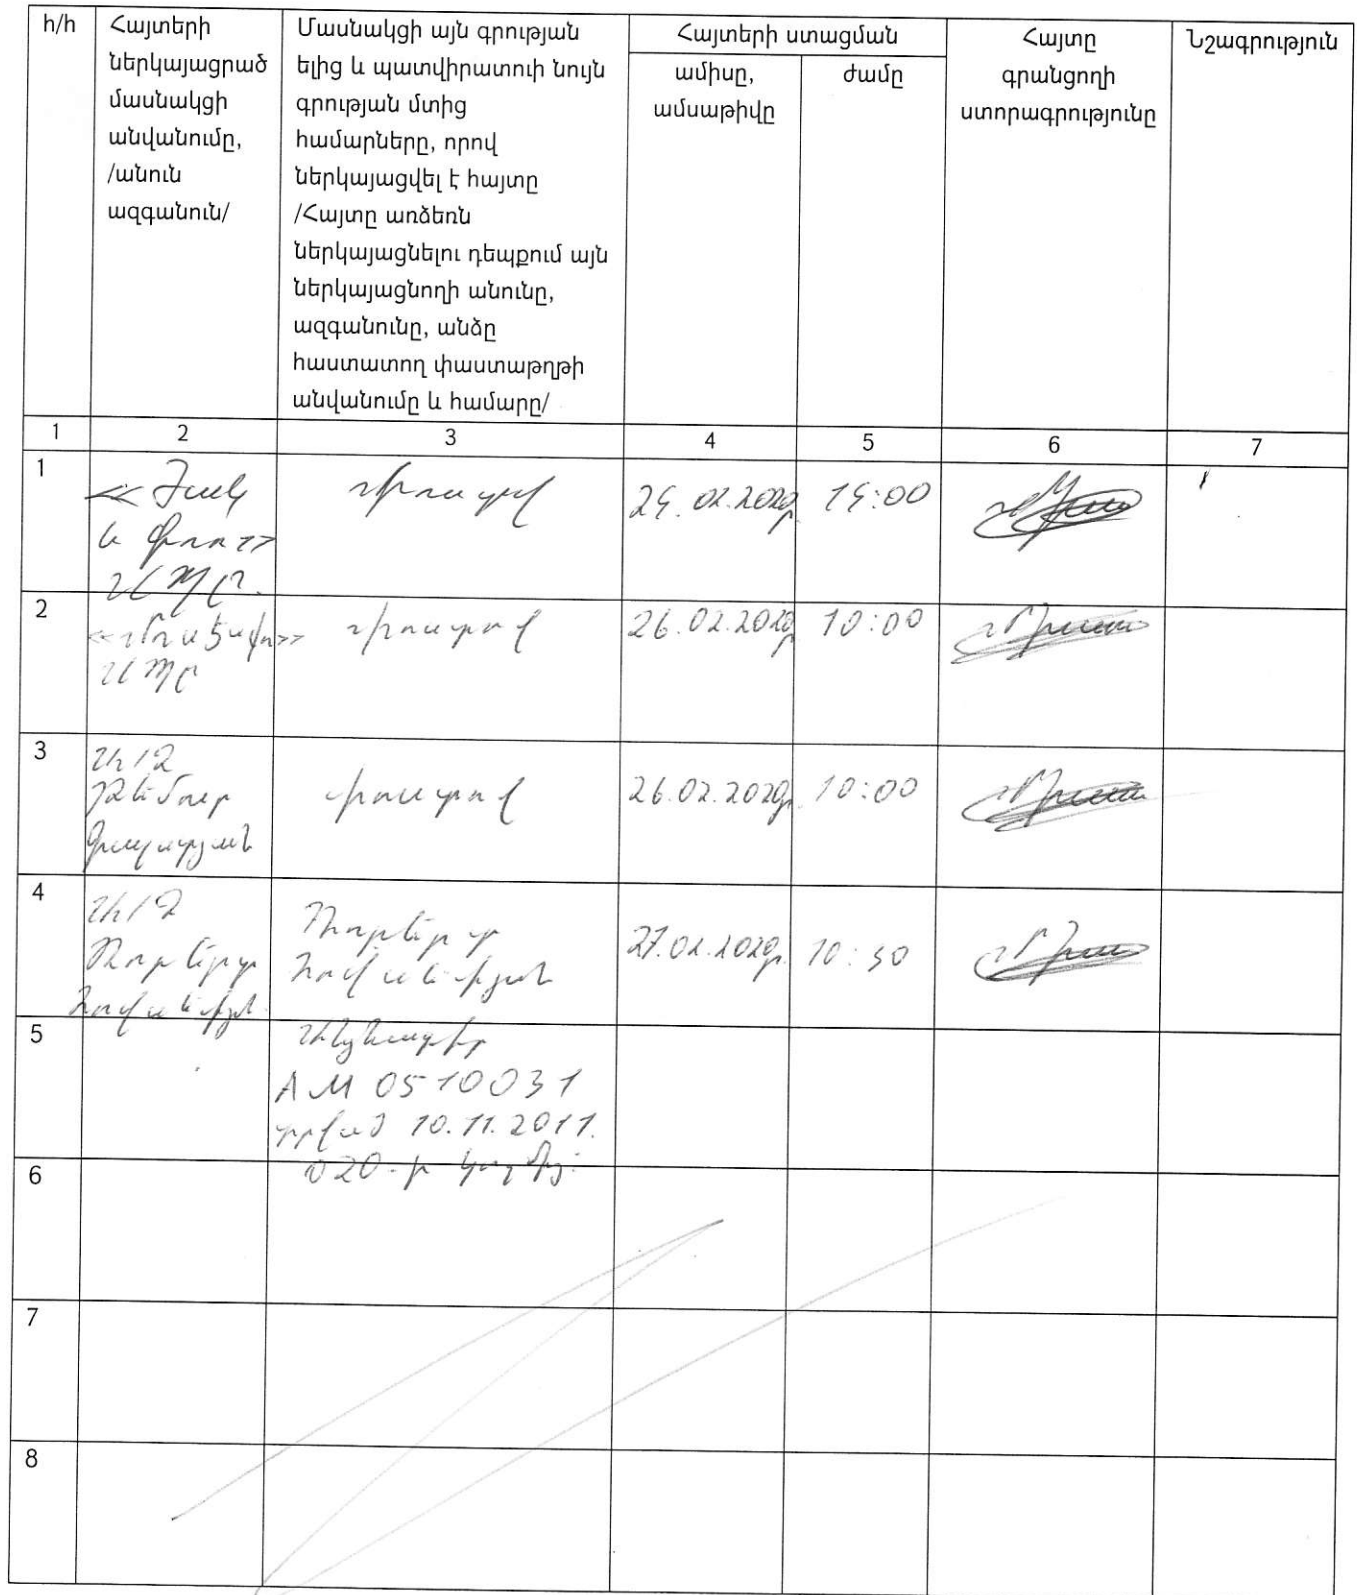 հ/հ
Հայտերի
ներկայացրած
մասնակցի
անվանումը,
/անուն
ազգանուն/
Մասնակցի այն գրության
ելից և պատվիրատուի նույն
գրության մտից
համարները, որով
ներկայացվել է հայտը
/Հայտը առձեռն
ներկայացնելու դեպքում այն
ներկայացնողի անունը,
ազգանունը, անձը
հաստատող փաստաթղթի
անվանումը և համարը/
Հայտերի ստացման
ամիսը,
ամսաթիվը
ժամը
Հայտը
գրանցողի
ստորագրությունը
Նշագրություն
1 2 3 4 5 6 7
1
և
ՍՊԸ
փոստով
02.2020թ.
2
ՍՊԸ
փոստով
26.02.2020թ.
10:00
3
Ա/Ձ
փոստով
26.02.2020թ.
10:00
4
Ա/Ձ
Ռոբերտ
Հովսեփյան
Ռոբերտ
Հովսեփյան
27.02.2020թ.
5
Անձնագիր
AM 0510031
տրված 10.11.2011.
6
020-ի կողմից:
7
8